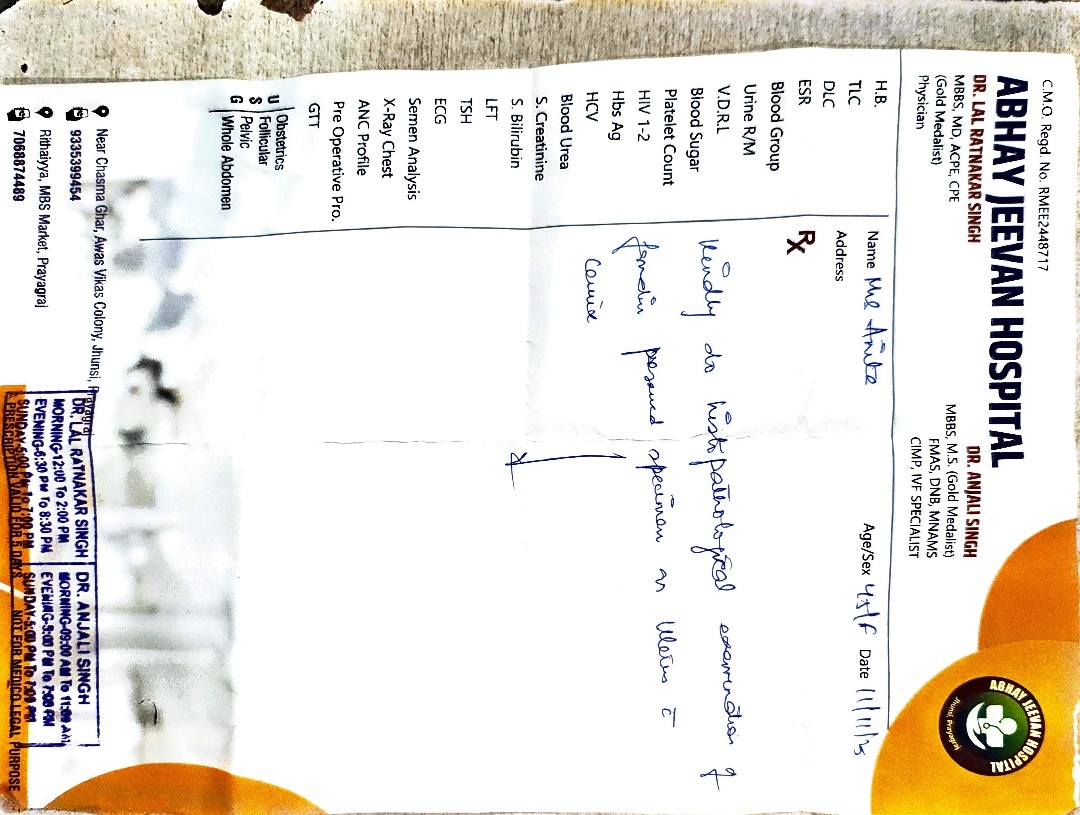 C.M.O. Regd. No. RMEE2448717
ABHAY JEEVAN HOSPITAL
DR. LAL RATNAKAR SINGH
MBBS, MD, ACPE, CPE
(Gold Medalist)
Physician
DR. ANJALI SINGH
MBBS, M.S. (Gold Medalist)
FMAS, DNB, MNAMS
CIMP, IVF SPECIALIST
ABHAY JEEVAN HOSPITAL
Jhunsi, Prayagraj
Name Anita Age/Sex 45/F Date 11/11/25
Address
Rx
Kindly do histopathological of
specimen as Uterus c̄
Cervix
H.B.
TLC
DLC
ESR
Blood Group
Urine R/M
V.D.R.L
Blood Sugar
Platelet Count
HIV 1-2
Hbs Ag
HCV
Blood Urea
S. Creatinine
S. Bilirubin
LFT
TSH
ECG
Semen Analysis
X-Ray Chest
ANC Profile
Pre Operative Pro.
GTT
USG
Obstetrics
Follicular
Pelvic
Whole Abdomen
Near Chasma Ghar, Awas Vikas Colony, Jhunsi, Prayagraj
9335399454
Rithaiyya, MBS Market, Prayagraj
7068874489
DR. LAL RATNAKAR SINGH
MORNING-12:00 To 2:00 PM
EVENING-6:30 PM To 8:30 PM
SUNDAY-5:00 PM To 7:00 PM
DR. ANJALI SINGH
MORNING-09:00 AM To 11:00 AM
EVENING-5:00 PM To 7:00 PM
SUNDAY-5:00 PM To 7:00 PM
PRESCRIPTION VALID FOR 5 DAYS
NOT FOR MEDICO LEGAL PURPOSE